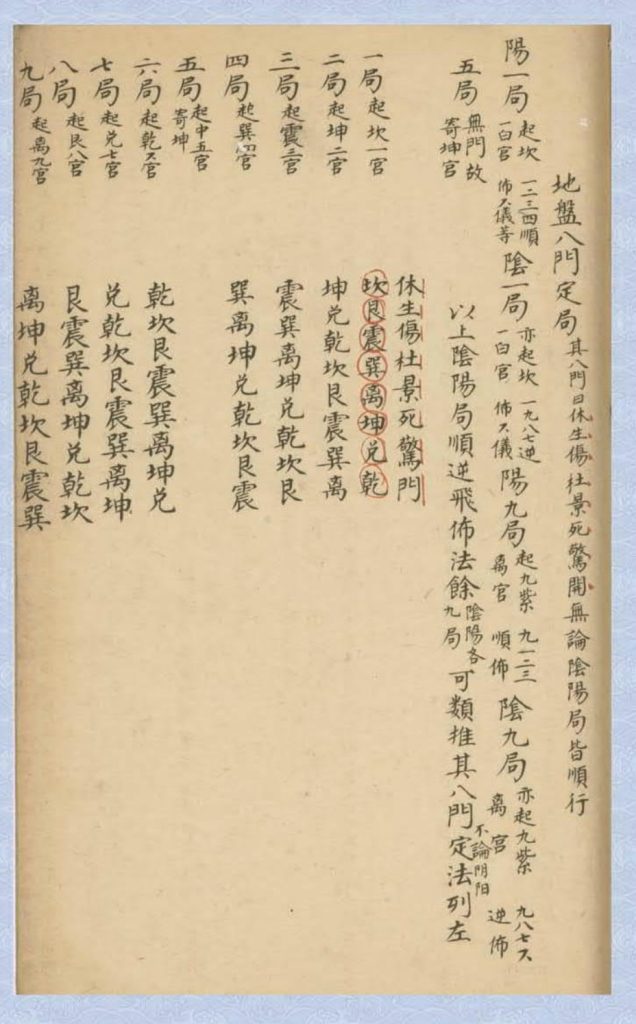 地盤八門定局其八門曰休生傷杜景死驚開無論陰陽局皆順行
陽一局起坎一白宮一二三四順佈六儀等陰一局亦起坎一白宮一九八七逆佈六儀陽九局起九紫离宮九一二三順佈陰九局亦起九紫离宮九八七六逆佈
五局無門故寄坤宮
以上陰陽局順逆飛佈法餘陰陽各九局可類推其八門定法列左
不論阴阳
休生傷杜景死驚門
一局起坎一宮 坎艮震巽离坤兌乾
二局起坤二宮 坤兌乾坎艮震巽离
三局起震三宮 震巽离坤兌乾坎艮
四局起巽四宮 巽离坤兌乾坎艮震
五局起中五宮寄坤
六局起乾六宮 乾坎艮震巽离坤兌
七局起兌七宮 兌乾坎艮震巽离坤
八局起艮八宮 艮震巽离坤兌乾坎
九局起离九宮 离坤兌乾坎艮震巽